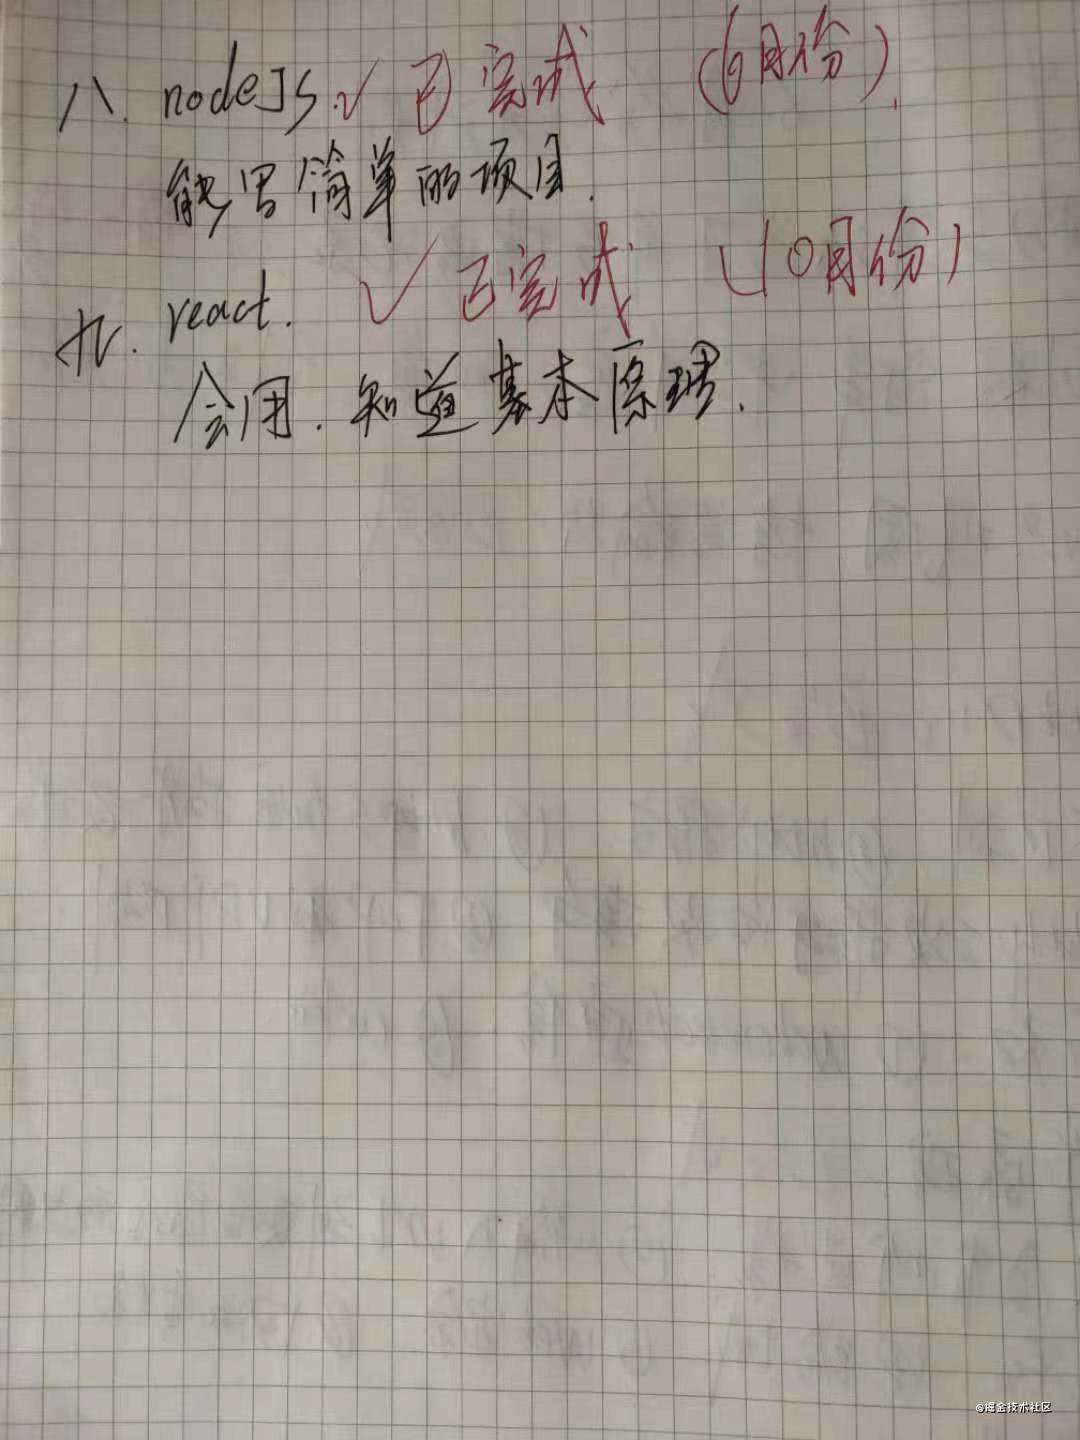 八. nodeJS. ✓ 已完成 (6月份).
能写简单的项目.
九. react. ✓ 已完成 (10月份)
会用. 知道基本原理.
@掘金技术社区